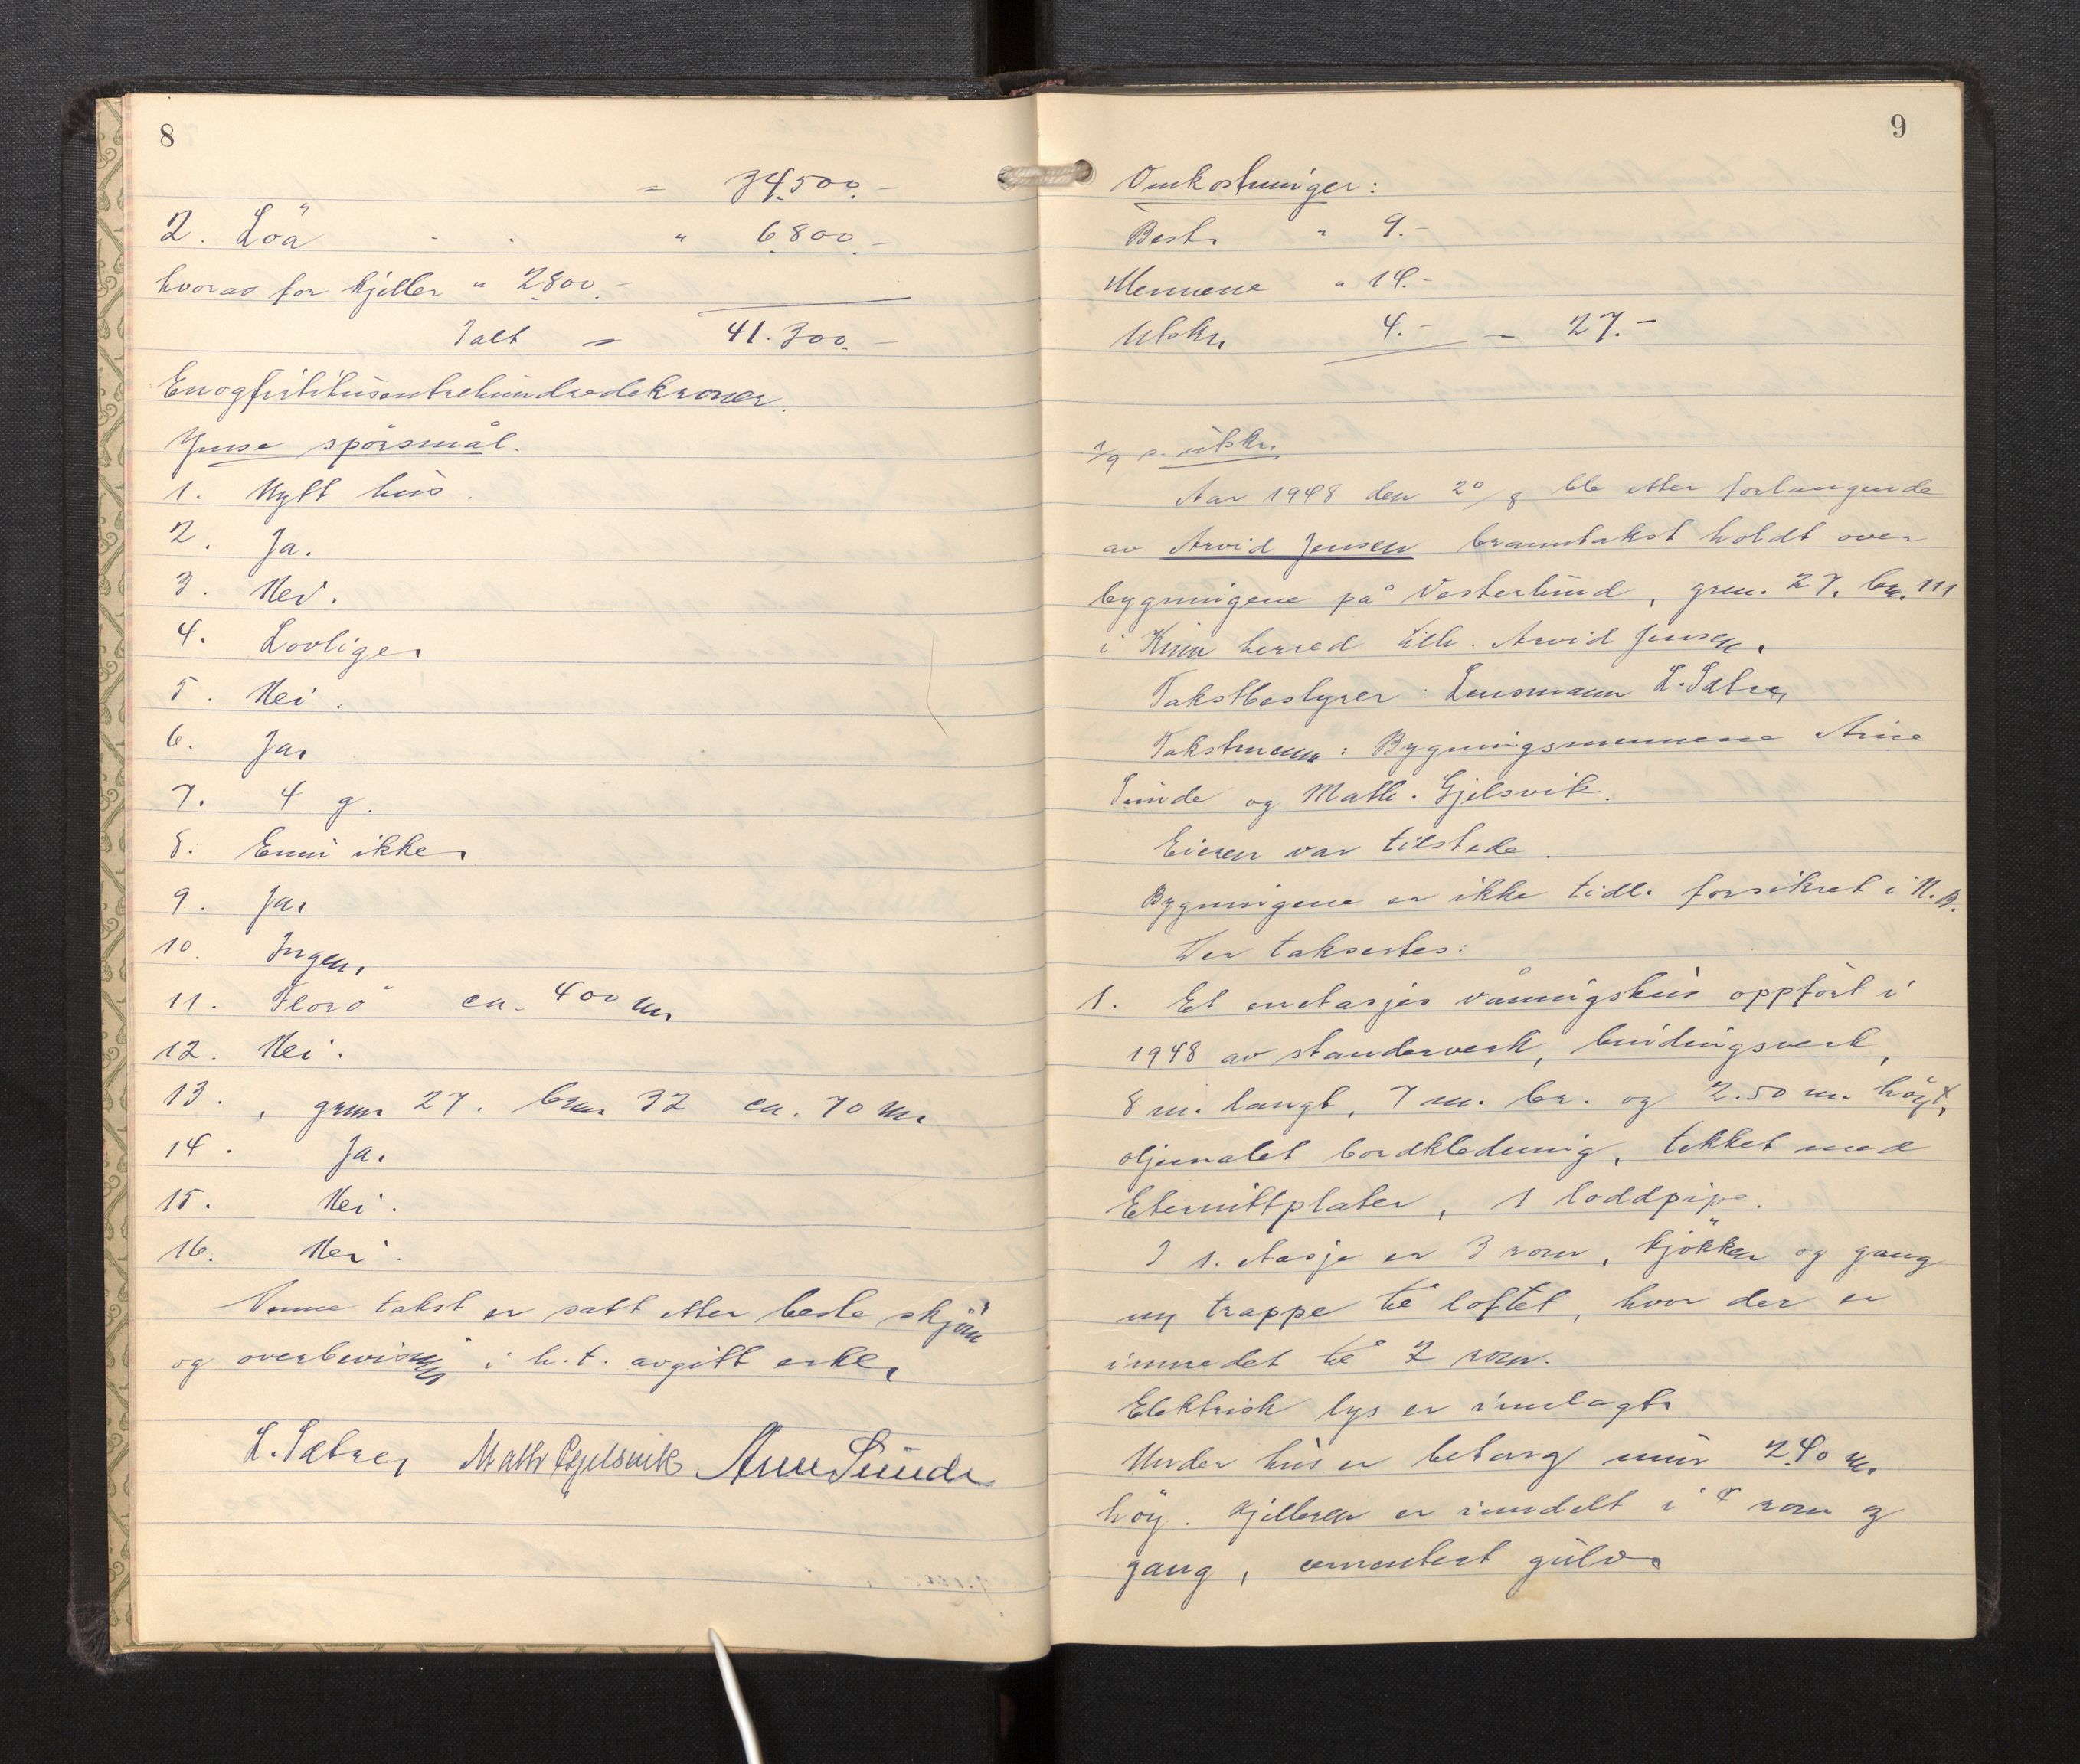 8
= 34.500.-
2. Löa . . " 6.800.-
hvorav for kjeller " 2800.-
Ialt = 41.300.-
Enogførtitusentrehundredekroner.
Ymse spørsmål.
1. Nytt hus.
2. Ja.
3. Nei.
4. Lovlige.
5. Nei.
6. Ja.
7. 4 g.
8. Ennu ikke.
9. Ja.
10. Ingen.
11. Florö ca. 400 m.
12. Nei.
13. , grnr 27. bnr. 32 ca. 70 m.
14. Ja.
15. Nei.
16. Nei.
Denne takst er satt etter beste skjön
og overbevisning i h.t. avgitt erkl.
L. Sætre, Math Gjelsvik Arne Sunde
9
Omkostninger:
Best. " 9.-
Mennene " 14.-
Utskr. 4.- = 27.-
1/9 s. utskr.
Aar 1948 den 20/8 ble etter forlangende
av Arvid Jensen branntakst holdt over
bygningene på Vesterlund, grn. 27, bn. 111
i Kinn herred tilh. Arvid Jensen.
Takstbestyrer: Lensmann L. Sætre,
Takstmenn: Bygningsmennene Arne
Sunde og Math. Gjelsvik.
Eieren var tilstede.
Bygningene er ikke tidl. forsikret i N.B.
Der taksertes:
1. Et enetasjes våningshus oppfört i
1948 av standerverk, bindingsverk,
8 m. langt, 7 m. br. og 2.50 m. höyt,
oljemalet bordkledning, tekket med
Eternittplater, 1 loddpipe.
I 1. etasje er 3 rom, kjökken og gang
og trappe til loftet, hvor der er
innredet til 2 rom.
Elektrisk lys er innlagt.
Under hus er betong mur 2.40 m.
höy. Kjelleren er inndelt i 4 rom og
gang, cementert gulv.